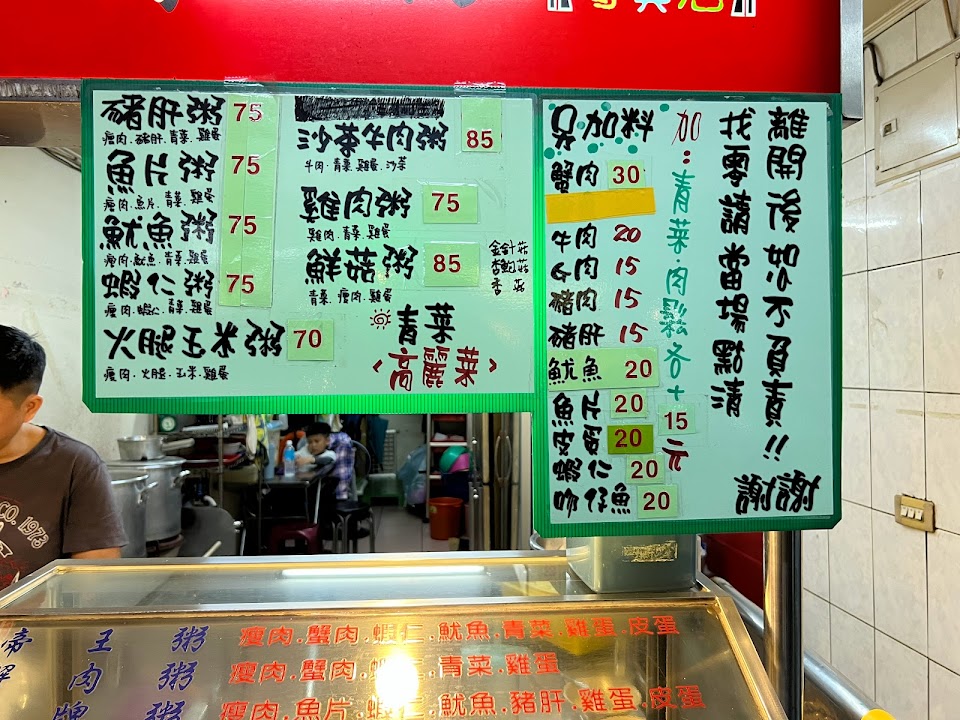 豬肝粥 75
瘦肉.豬肝.青菜.雞蛋
魚片粥 75
瘦肉.魚片.青菜.雞蛋
魷魚粥 75
瘦肉.魷魚.青菜.雞蛋
蝦仁粥 75
瘦肉.蝦仁.青菜.雞蛋
火腿玉米粥 70
瘦肉.火腿.玉米.雞蛋
沙茶牛肉粥 85
牛肉.青菜.雞蛋.沙茶
雞肉粥 75
雞肉.青菜.雞蛋
鮮菇粥 85
青菜.瘦肉.雞蛋
金針菇
杏鮑菇
香菇
青菜
<高麗菜>
另加料
蟹肉 30
牛肉 20
15
豬肉 15
豬肝 15
魷魚 20
魚片 20
皮蛋 20
蝦仁 20
吻仔魚 20
加:青菜.肉鬆各+15元
找零請當場點清
離開後恕不負責!!
謝謝
CO. 1973
帝王粥 瘦肉.蟹肉.蝦仁.魷魚.青菜.雞蛋.皮蛋
肉粥 瘦肉.蟹肉.蝦仁.青菜.雞蛋
牌粥 瘦肉.魚片.蝦仁.魷魚.豬肝.雞蛋.皮蛋